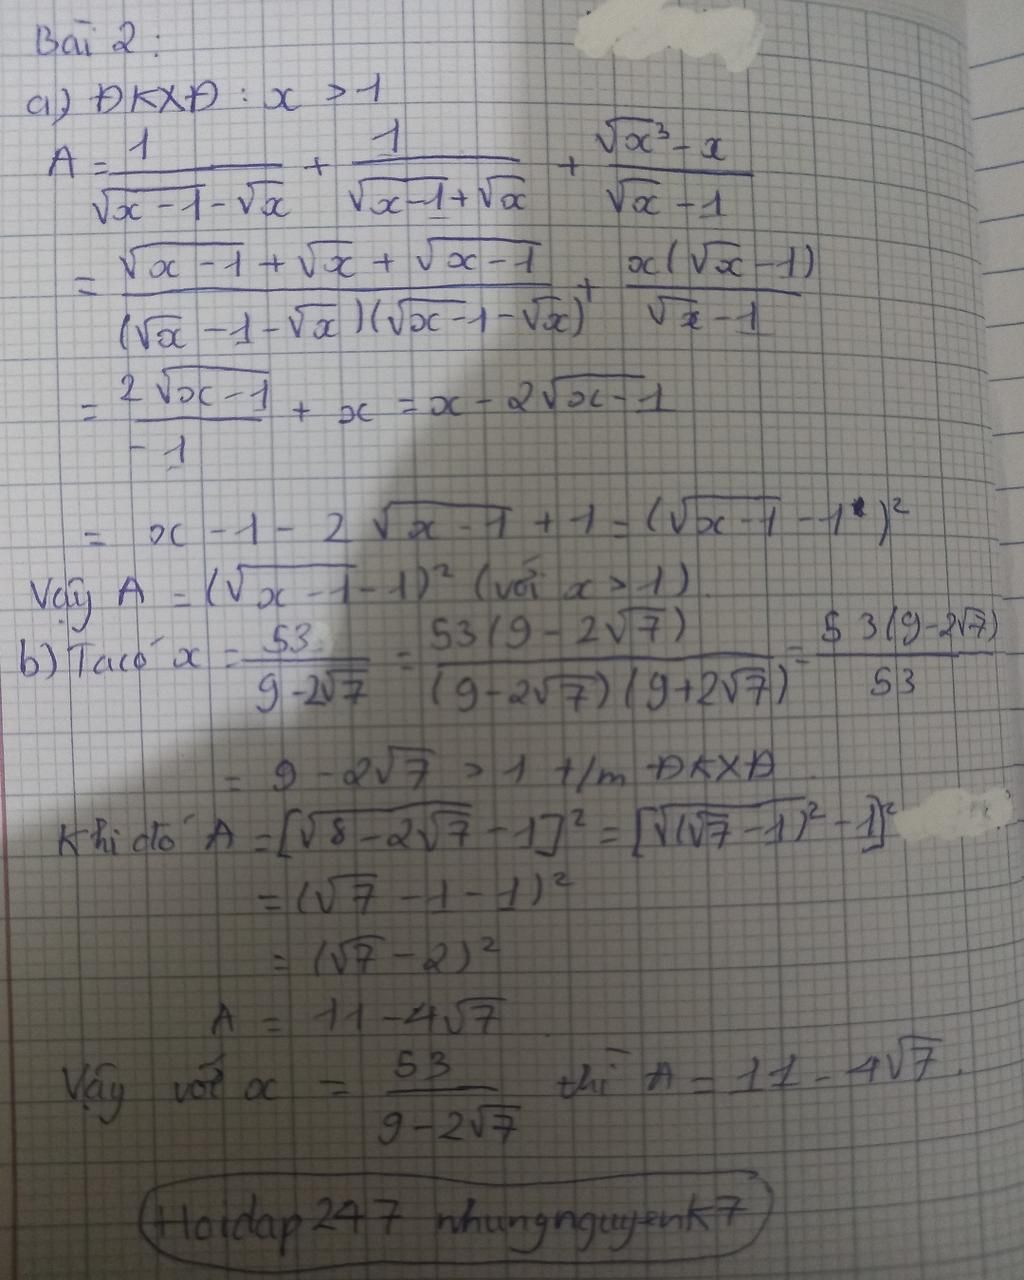 Bài 2:
a) ĐKXĐ: x > 1
A = 1/(√(x-1) - √x) + 1/(√(x-1) + √x) + (√x³ - x)/(√x - 1)
= (√(x-1) + √x + √(x-1))/((√x - 1 - √x)(√x - 1 - √x)) + x(√x - 1)/(√x - 1)
= 2√(x-1)/(-1) + x = x - 2√(x-1)
= x - 1 - 2√(x-1) + 1 = (√(x-1) - 1)²
Vậy A = (√(x-1) - 1)² (với x > 1)
b) Ta có x = 53/(9-2√7) = 53(9-2√7)/((9-2√7)(9+2√7)) = 53(9-2√7)/53
= 9 - 2√7 > 1 t/m ĐKXĐ
Khi đó A = [√(8-2√7) - 1]² = [√(√7-1)² - 1]²
= (√7 - 1 - 1)²
= (√7 - 2)²
A = 11 - 4√7
Vậy với x = 53/(9-2√7) thì A = 11 - 4√7.
Hoidap247 nhungnguyenk7